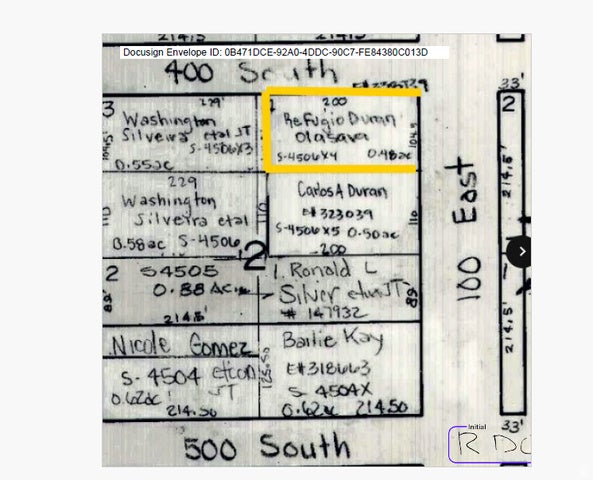 214.5'
Docusign Envelope ID: 0B471DCE-92A0-4DDC-90C7-FE84380C013D
400 South
33'
3
229'
Washington
Silveira etal JT
S-4506X3
0.55ac
200
Refugio Duran
Olasava
S-4506X4 0.48ac
104.5
2
214.5'
229
Washington
Silveira etal
0.58ac S-4506
110
Carlos A Duran
E# 323039
S-4506X5 0.50ac
200
110
100 East
2
2 S4505
0.88 Ac.
214.5
82'
1. Ronald L
Silver etux JT
# 147932
82
214.5'
Nicole Gomez
S-4504 etcon
JT
0.62ac
214.50
125.50
Bailie Kay
E#318663
S-4504X
0.62ac 214.50
33'
500 South
Initial
R DO